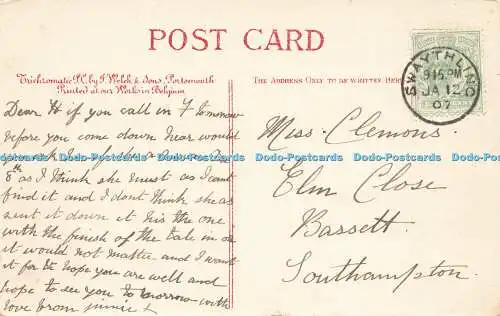 POST CARD
Trichromatic P.C. by J. Welch & Sons, Portsmouth
Printed at our Works in Belgium
THE ADDRESS ONLY TO BE WRITTEN HERE
SWAYTHLING
9.15 PM
JA 12
07
Dear H if you call in F tomorrow
before you come down hear would
you ask
8th as I think she must as I cant
find it and I dont think she as
sent it down it his the one
with the finish of the tale in or
it would not matter and I want
it for to hope you are well and
hope to see you to morrow with
love from
Miss. Clemons.
Elm Close
Bassett.
Southampton.
Dodo-Postcards Dodo-Postcards Dodo-Postcards Dodo-Postcards Dodo-Postcards